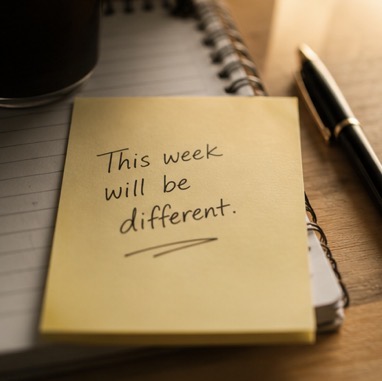 This week
will be
different.